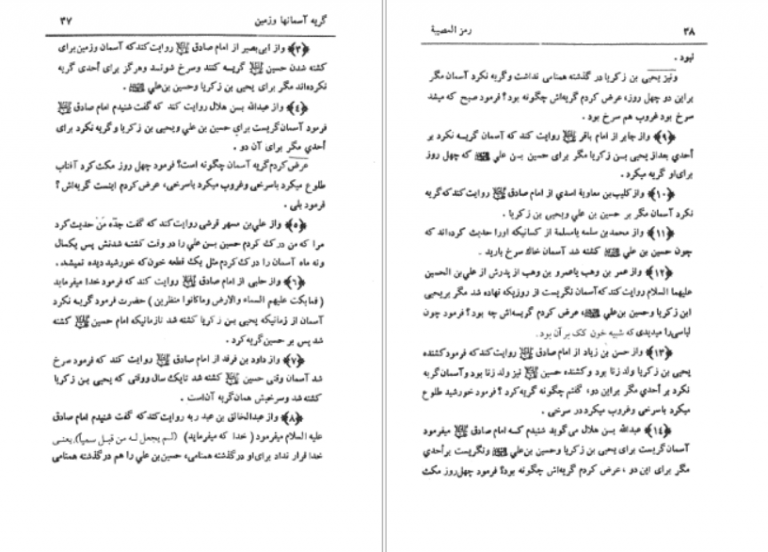 گریه آسمانها وزمین ۳۷
﴿۳﴾ واز ابی‌بصیر از امام صادق روایت کند که آسمان وزمین برای
کشته شدن حسین گریسه کنند وسرخ شوند وهرگز برای أحدی گریه
نکرده‌اند مگر برای یحیی بن زکریا وحسین بن علي .
﴿۴﴾ واز عبدالله بن هلال روایت کند که گفت شنیدم امام صادق
فرمود آسمان گریست برای حسین بن علي ویحیی بن زکریا وگریه نکرد برای
أحدی مگر برای آن دو .
عرض کردم گریه آسمان چگونه است؟ فرمود چهل روز مکث کرد آفتاب
طلوع میکرد باسرخی وغروب میکرد باسرخی، عرض کردم اینست گریه‌اش ؟
فرمود بلی .
﴿۵﴾ واز علي بن مسهر قرشی روایت کند که گفت جدّه من حدیث کرد
مرا که من درك کردم حسین بن علي را در وقت کشته شدنش پس یکسال
ونه ماه آسمان را درك کردم مثل یك قطعه خون که خورشید دیده نمیشد.
﴿۶﴾ واز حلبی از امام صادق روایت کند که فرمود خدا میفرماید
( فمابکت علیهم السماء والارض وماکانوا منظرین ) حضرت فرمود گریه نکرد
آسمان از زمانیکه یحیی بن زکریا کشته شد تازمانیکه امام حسین کشته
شد پس بر حسین گریه کرد .
﴿۷﴾ واز داود بن فرقد از امام صادق روایت کند که فرمود سرخ
شد آسمان وقتی حسین کشته شد تایك سال ووقتی که یحیی بن زکریا
کشته شد وسرخیش همان گریه آن‌است .
﴿۸﴾ واز عبدالخالق بن عبد ربه روایت کند که گفت شنیدم امام صادق
علیه السلام میفرمود ( خدا که میفرماید ) (لم یجعل له من قبل سمیا)، یعنی
خدا قرار نداد برای او درگذشته همنامی، حسین بن علي را هم درگذشته همنامی
۳۸ رمز المصیبة
نبود .
ونیز یحیی بن زکریا در گذشته همنامی نداشت وگریه نکرد آسمان مگر
براین دو چهل روز، عرض کردم گریه‌اش چگونه بود؟ فرمود صبح که میشد
سرخ بود غروب هم سرخ بود .
﴿۹﴾ واز جابر از امام باقر روایت کند که آسمان گریسه نکرد بر
أحدی بعداز یحیی بن زکریا مگر برای حسین بن علي که چهل روز
برای او گریه میکرد .
﴿۱۰﴾ واز کلیب بن معاویة اسدی از امام صادق روایت کند که گریه
نکرد آسمان مگر بر حسین بن علي ویحیی بن زکریا .
﴿۱۱﴾ واز محمد بن سلمه یاسلمة از کسانیکه اورا حدیث کرده‌اند که
چون حسین بن علي کشته شد آسمان خاك سرخ بارید .
﴿۱۲﴾ واز عمر بن وهب یاعمرو بن وهب از پدرش از علي بن الحسین
علیهما السلام روایت کند که آسمان نگریست از روزیکه نهاده شد مگر بریحیی
ابن زکریا وحسین بن علي، عرض کردم گریه‌اش چه بود؟ فرمود چون
لباسی را میدیدی که شبیه خون کك بر آن بود .
﴿۱۳﴾ واز حسن بن زیاد از امام صادق روایت کند که فرمود کشنده
یحیی بن زکریا ولد زنا بود وکشنده حسین نیز ولد زنا بود وآسمان گریه
نکرد بر أحدي مگر براین دو، گفتم چگونه گریه کرد ؟ فرمود خورشید طلوع
میکرد باسرخی وغروب میکرد در سرخی .
﴿۱۴﴾ عبدالله بن هلال می‌گوید شنیدم که امام صادق میفرمود
آسمان گریست برای یحیی بن زکریا وحسین بن علي ونگریست برأحدي
مگر برای این دو ، عرض کردم گریه‌اش چگونه بود؟ فرمود چهل روز مکث